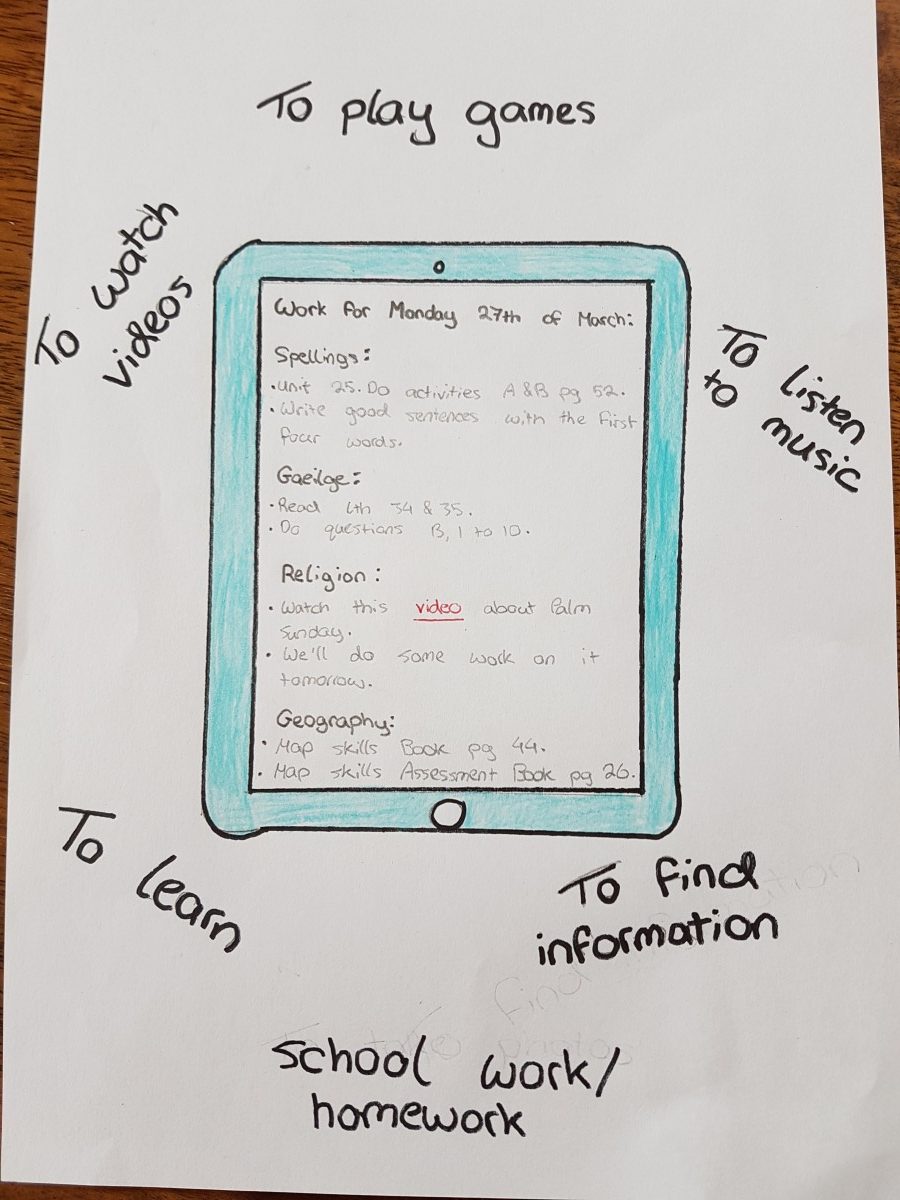 To play games
To watch
videos
To listen
to music
Work for Monday 27th of March:
Spellings:
•Unit 25. Do activities A & B pg 52.
•Write good sentences with the first
four words.
Gaeilge:
•Read lth 34 & 35.
•Do questions B, 1 to 10.
Religion:
• Watch this video about Palm
Sunday.
• We'll do some work on it
tomorrow.
Geography:
• Map skills Book pg 44.
• Map skills Assessment Book pg 26.
To learn
To find
information
school work/
homework